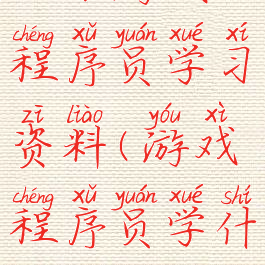 chéng xǔ yuán xué xí
程序员学习
zī liào yóu xì
资料(游戏
chéng xǔ yuán xué shí
程序员学什